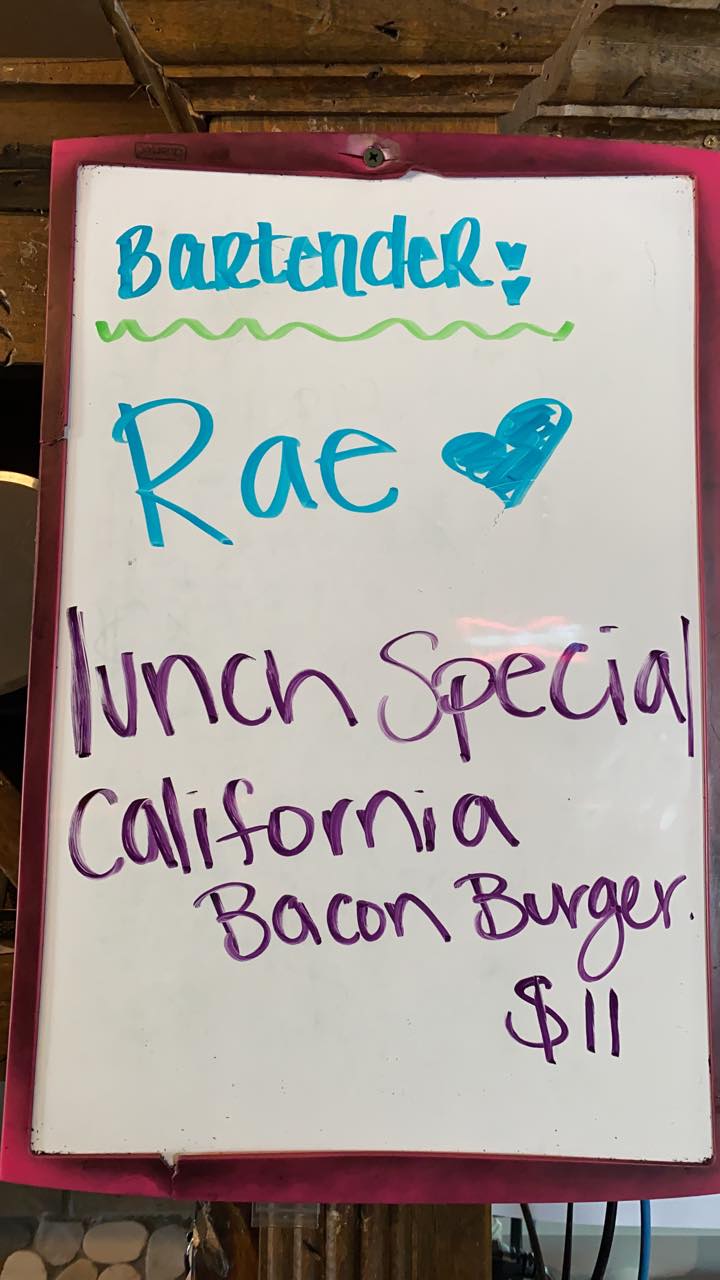 Bartender:
Rae
lunch Special
California
Bacon Burger.
$11